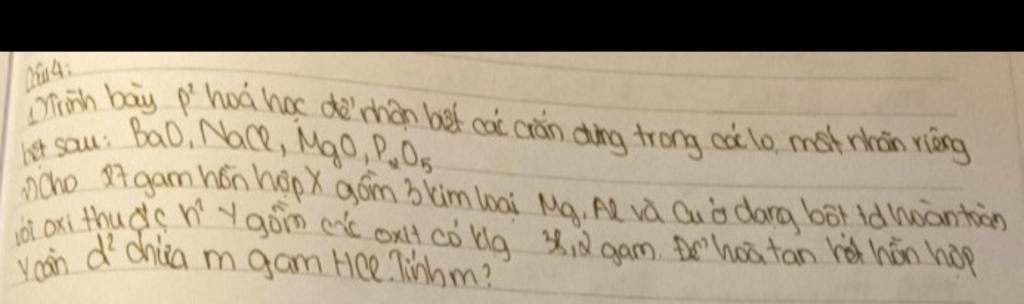 Câu 4:
1) Trình bày p² hoá học để nhận biết các c rắn đựng trong các lọ mất nhãn riêng
biệt sau: BaO, NaCl, MgO, P₂O₅
2) Cho 27 gam hỗn hợp X gồm 3 kim loại Mg, Al và Cu ở dạng bột td hoàn toàn
với oxi thu được h² Y gồm các oxit có klg gam. Để hoà tan hết hỗn hợp
Y cần d² chứa m gam HCl. Tính m?